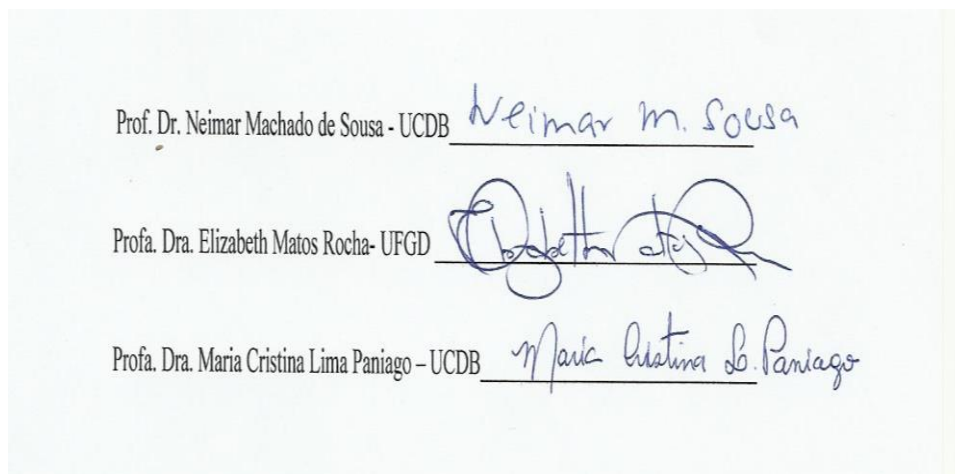 Prof. Dr. Neimar Machado de Sousa - UCDB Neimar M. Sousa
Profa. Dra. Elizabeth Matos Rocha- UFGD Elizabeth
Profa. Dra. Maria Cristina Lima Paniago – UCDB Maria Cristina L. Paniago